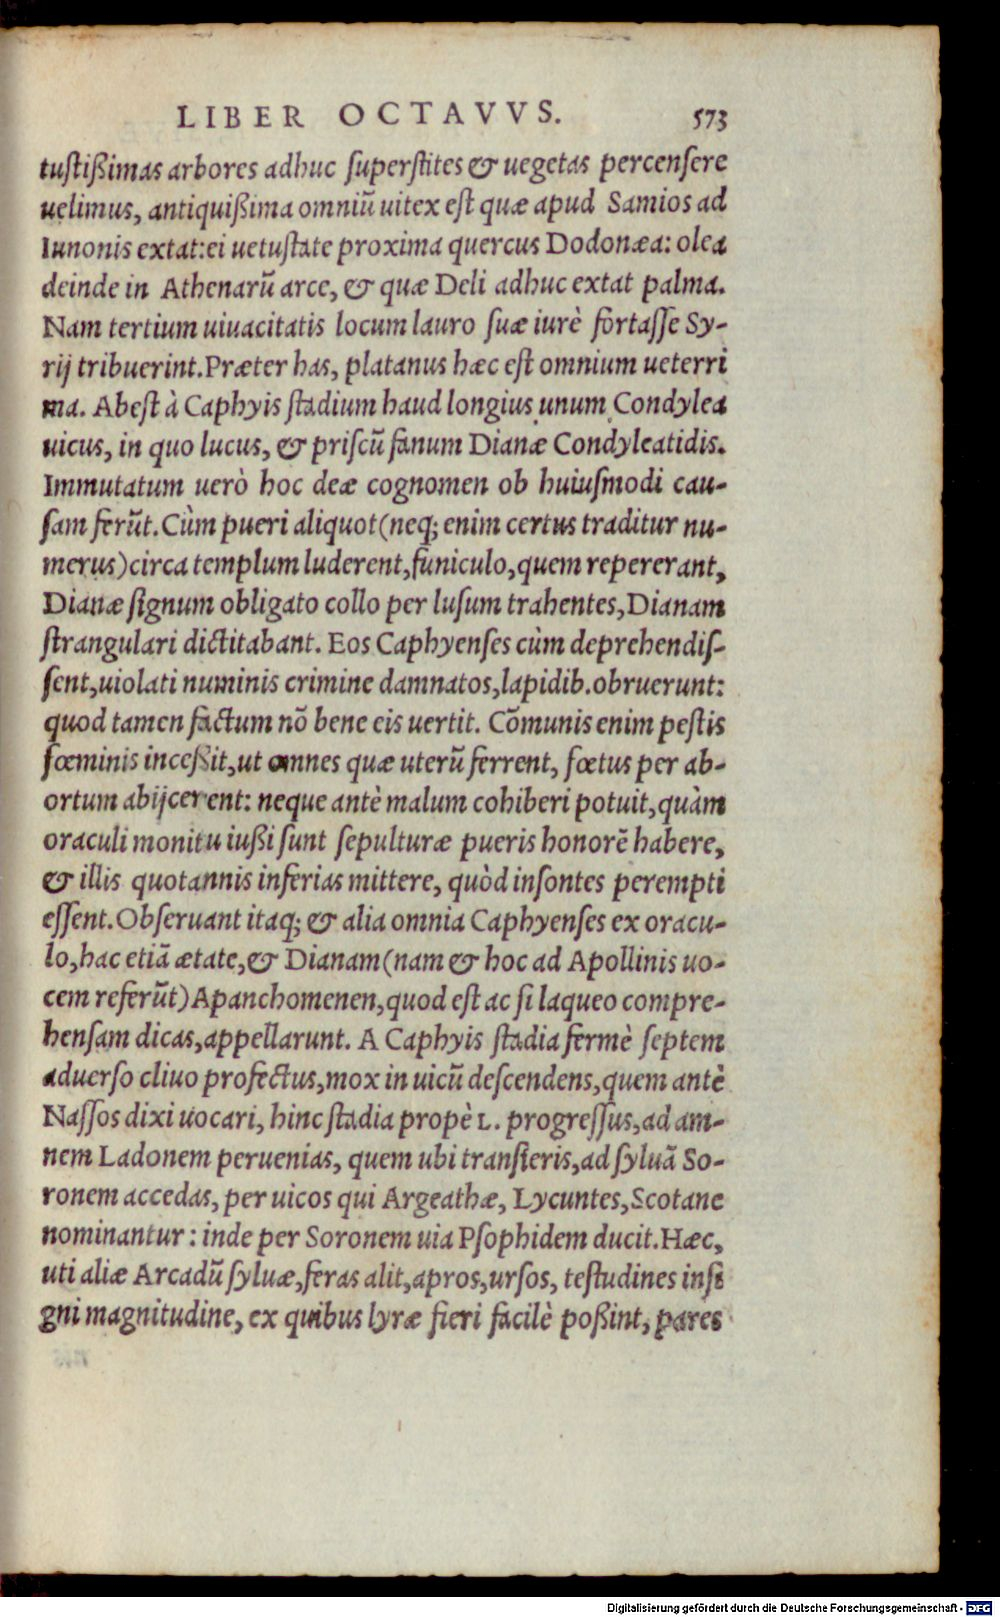 LIBER OCTAVVS. 573
tustißimas arbores adhuc superstites & uegetas percensere
uelimus, antiquißima omniũ uitex est quæ apud Samios ad
Iunonis extat: ei uetustate proxima quercus Dodonæa: olea
deinde in Athenarũ arce, & quæ Deli adhuc extat palma.
Nam tertium uiuacitatis locum lauro suæ iurè fortasse Sy-
rij tribuerint. Præter has, platanus hæc est omnium ueterri
ma. Abest à Caphyis stadium haud longius unum Condylea
uicus, in quo lucus, & priscũ fanum Dianæ Condyleatidis.
Immutatum uerò hoc deæ cognomen ob huiusmodi cau-
sam ferũt. Cùm pueri aliquot (neq; enim certus traditur nu-
merus) circa templum luderent, funiculo, quem repererant,
Dianæ signum obligato collo per lusum trahentes, Dianam
strangulari dictitabant. Eos Caphyenses cùm deprehendis-
sent, uiolati numinis crimine damnatos, lapidib. obruerunt:
quod tamen factum nõ bene eis uertit. Cõmunis enim pestis
fœminis inceßit, ut omnes quæ uterũ ferrent, fœtus per ab-
ortum abijcerent: neque antè malum cohiberi potuit, quàm
oraculi monitu iußi sunt sepulturæ pueris honorẽ habere,
& illis quotannis inferias mittere, quòd insontes perempti
essent. Obseruant itaq; & alia omnia Caphyenses ex oracu-
lo, hac etiã ætate, & Dianam (nam & hoc ad Apollinis uo-
cem referũt) Apanchomenen, quod est ac si laqueo compre-
hensam dicas, appellarunt. A Caphyis stadia fermè septem
aduerso cliuo profectus, mox in uicũ descendens, quem antè
Nassos dixi uocari, hinc stadia propè L. progressus, ad am-
nem Ladonem peruenias, quem ubi transieris, ad syluã So-
ronem accedas, per uicos qui Argeathæ, Lycuntes, Scotane
nominantur: inde per Soronem uia Psophidem ducit. Hæc,
uti aliæ Arcadũ syluæ, feras alit, apros, ursos, testudines insi
gni magnitudine, ex quibus lyræ fieri facilè poßint, pares
Digitalisierung gefördert durch die Deutsche Forschungsgemeinschaft - DFG